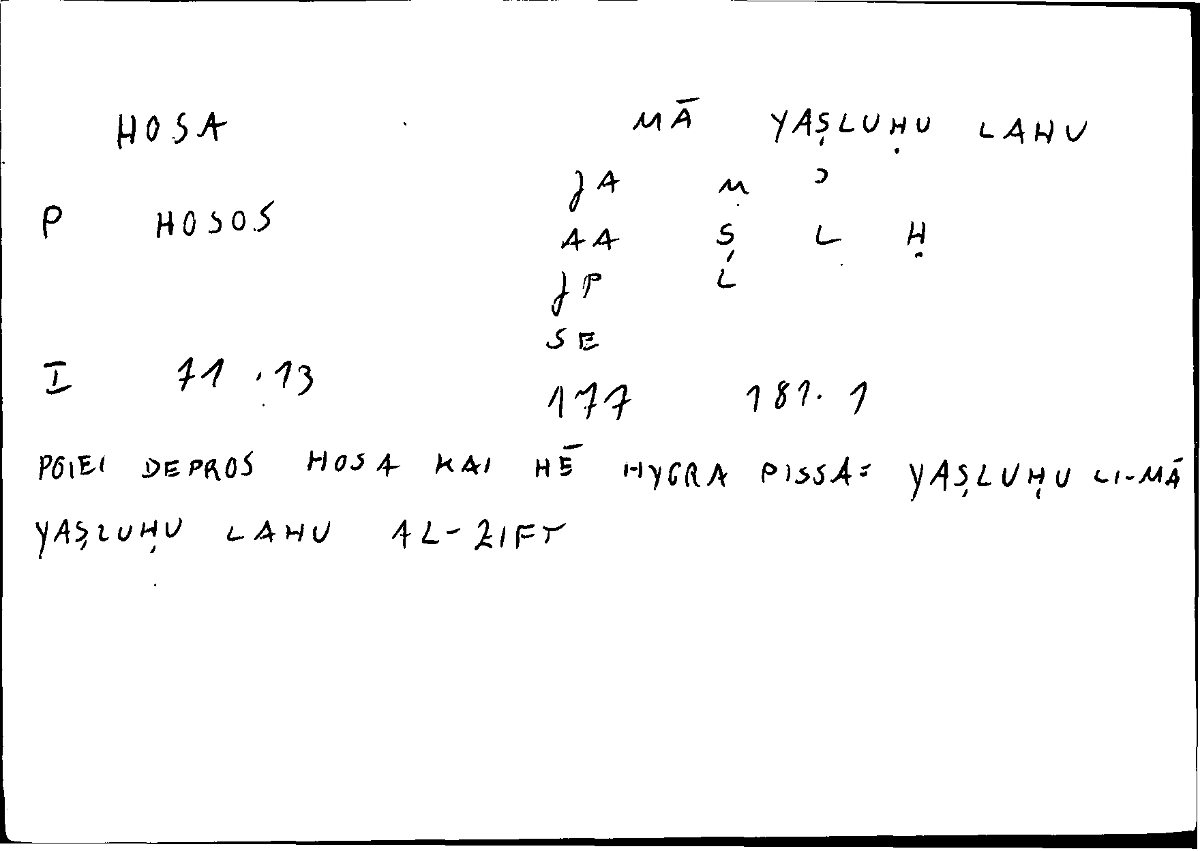 HOSA MĀ YAṢLUḤU LAHU
JA M Ɔ
P HOSOS
AA Ṣ L Ḥ
JP L
SE
I 71.13
177 181.1
POIEI DEPROS HOSA KAI HĒ HYGRA PISSA= YAṢLUḤU LI-MĀ
YAṢLUḤU LAHU AL-ZIFT